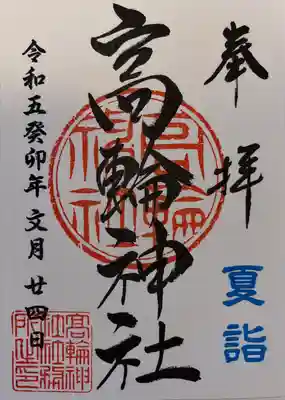 奉拝
夏詣
高輪神社
令和五癸卯年文月廿四日
高輪神社
髙輪神社社務所之印